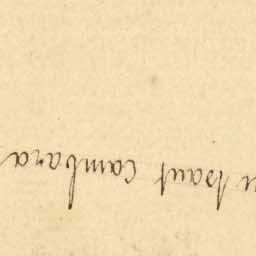 haut Cambara